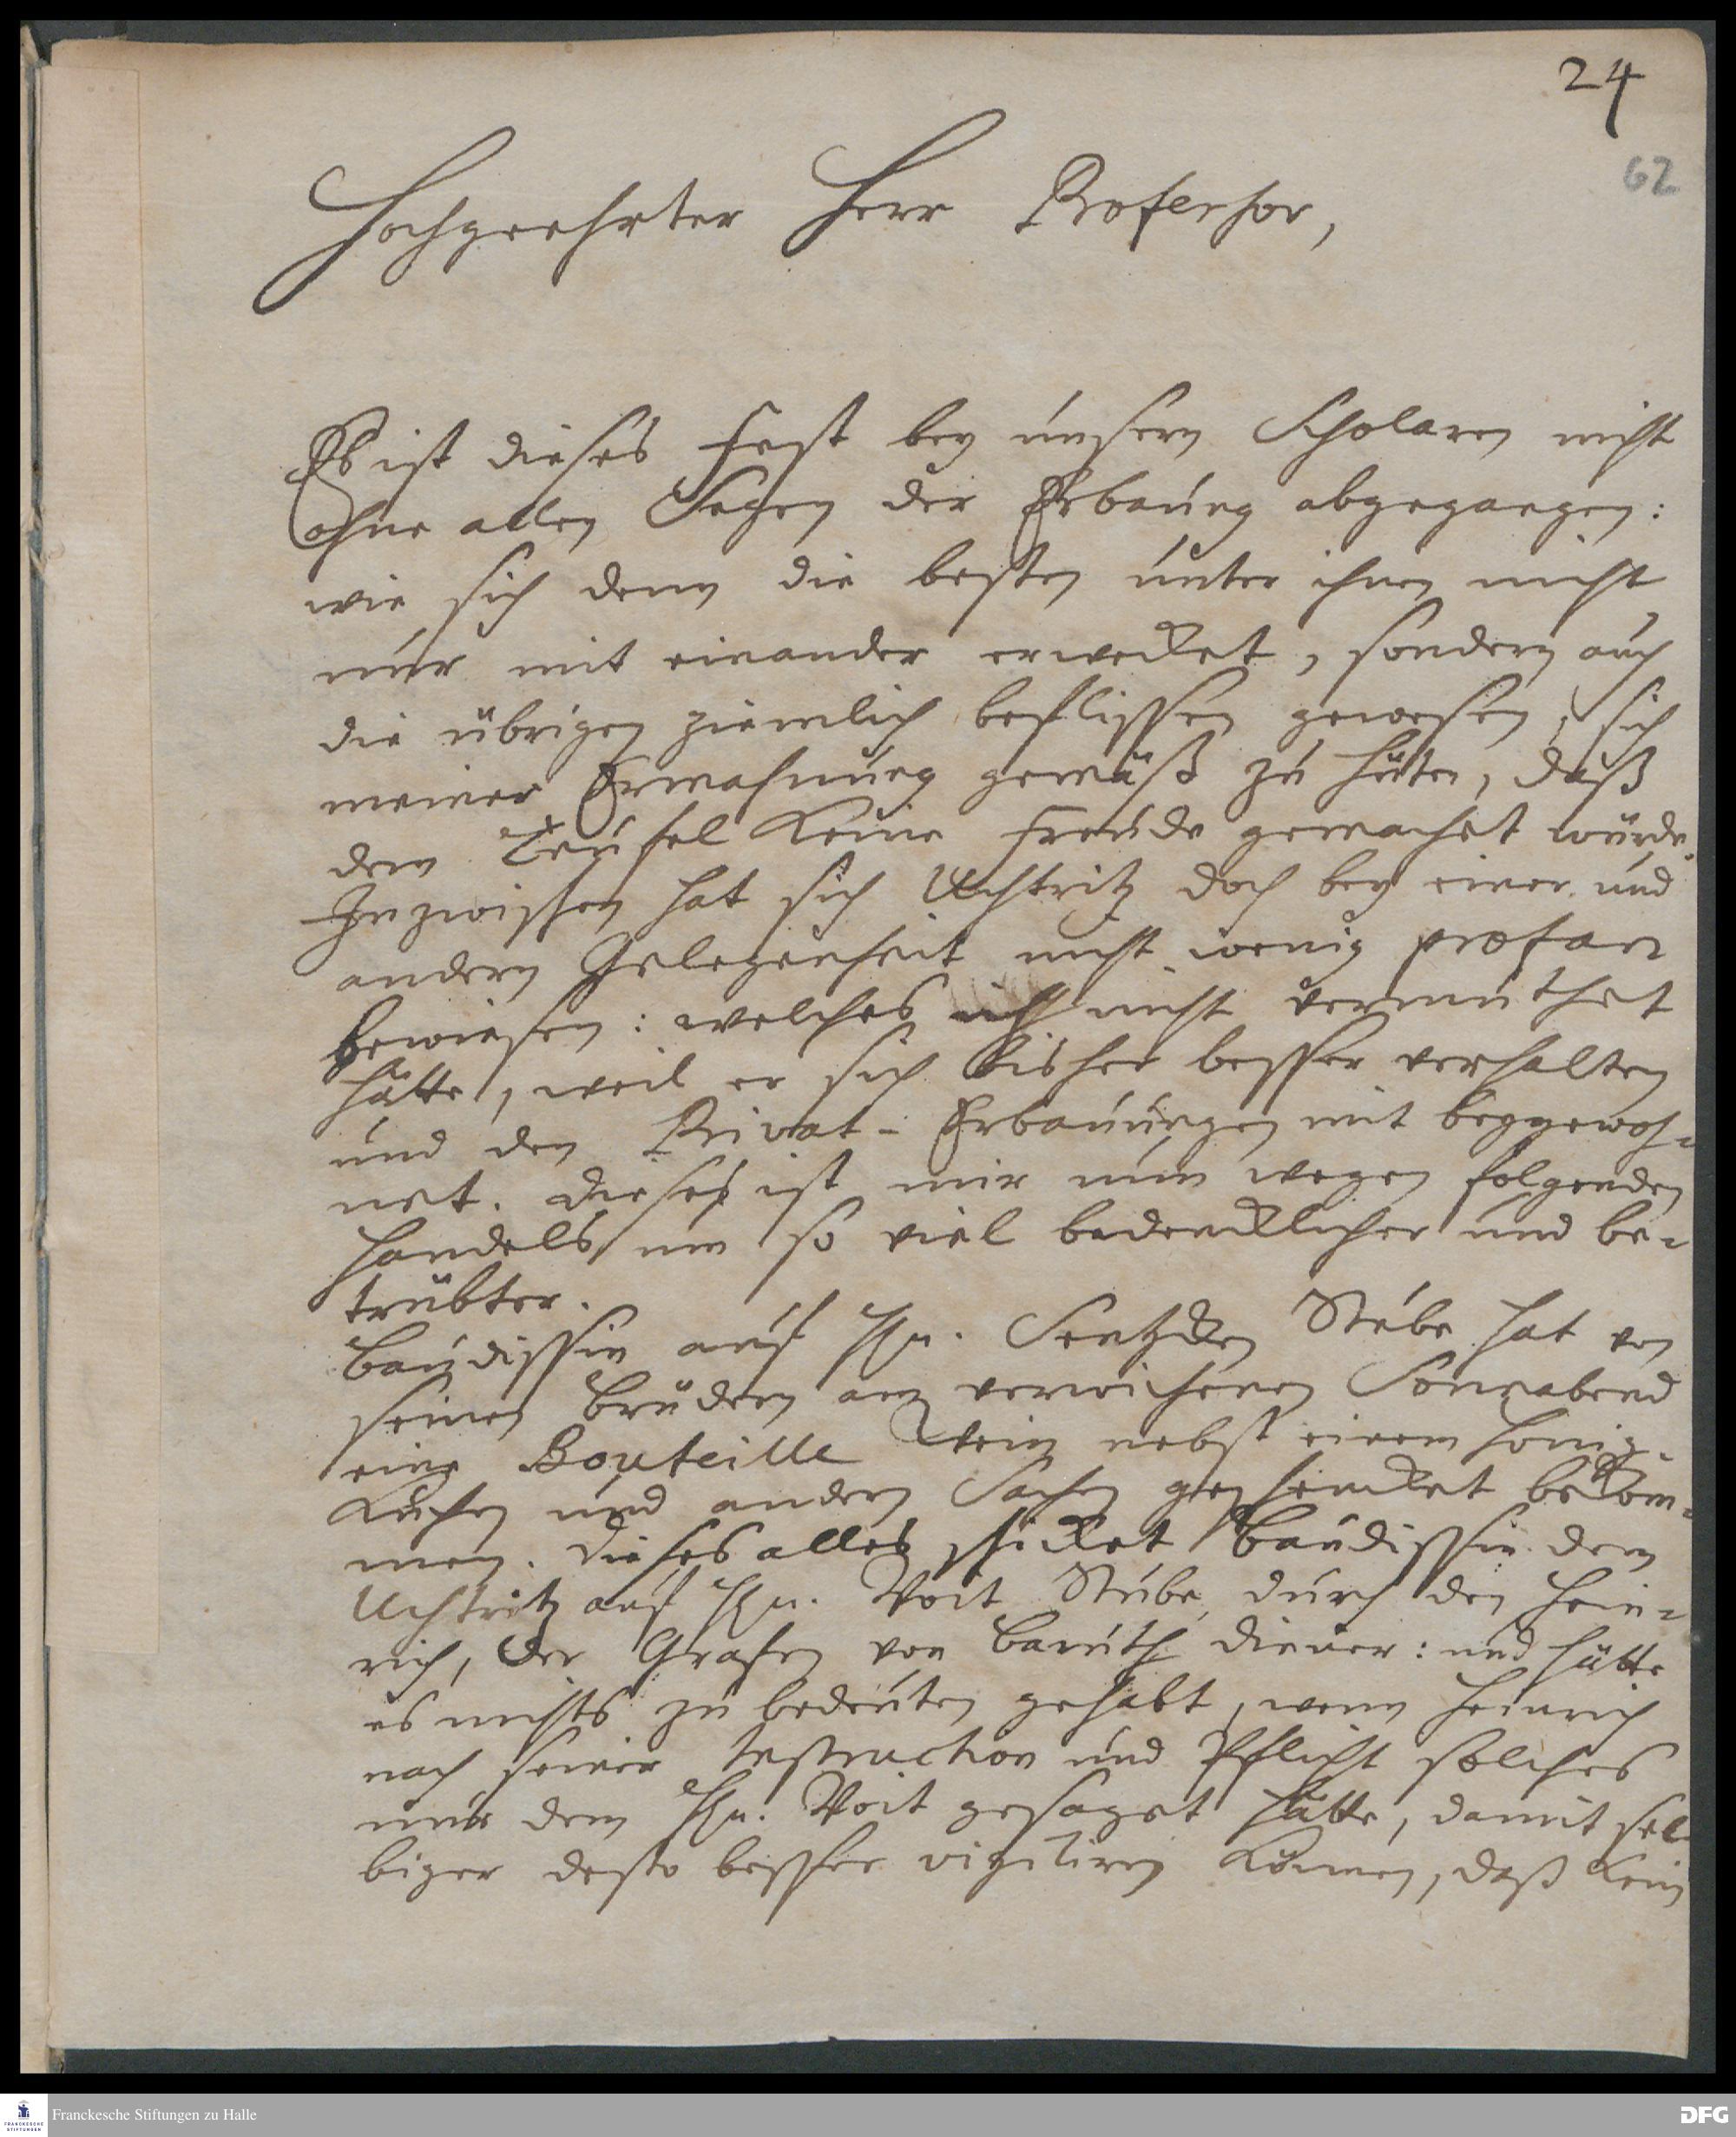 24
62
Hochgeehrter Herr Professor,
Es ist dieses Fest bey unsern Scholaren nicht
ohne allen Segen der Erbauung abgegangen:
wie sich denn die besten unter ihnen nicht
nur mit einander erwecket, sondern auch
die übrigen ziemlich beflissen gewesen, sich
meiner Ermahnung gemäß zu hüten, daß
dem Teufel keine Freude gemachet würde.
Inzwischen hat sich Uchtritz doch bey einer und
andern Gelegenheit nicht wenig profan
bewiesen: welches ich nicht vermuthet
hätte, weil er sich bisher besser verhalten
und den Privat-Erbauungen mit beygewoh-
net. Dieses ist mir nun wegen folgenden
Handels um so viel bedencklicher und be-
trübter.
Baudissin auf Hn. Stube hat von
seinen Brüdern am verwichenen Sonnabend
eine Bouteille Wein nebst einem Honig-
Kuchen und andern Sachen geschencket bekom-
men. Dieses alles schicket Baudissin dem
Uchtritz auf Hn. Voit Stube durch den Hein-
rich, der Grafen von Baruth Diener: und hätte
es nichts zu bedeuten gehabt, wenn Heinrich
nach seiner Instruction und Pflicht solches
nur dem Hn. Voit gesaget hätte, damit sel-
biger desto besser vigiliren können, daß kein
Franckesche Stiftungen zu Halle
DFG